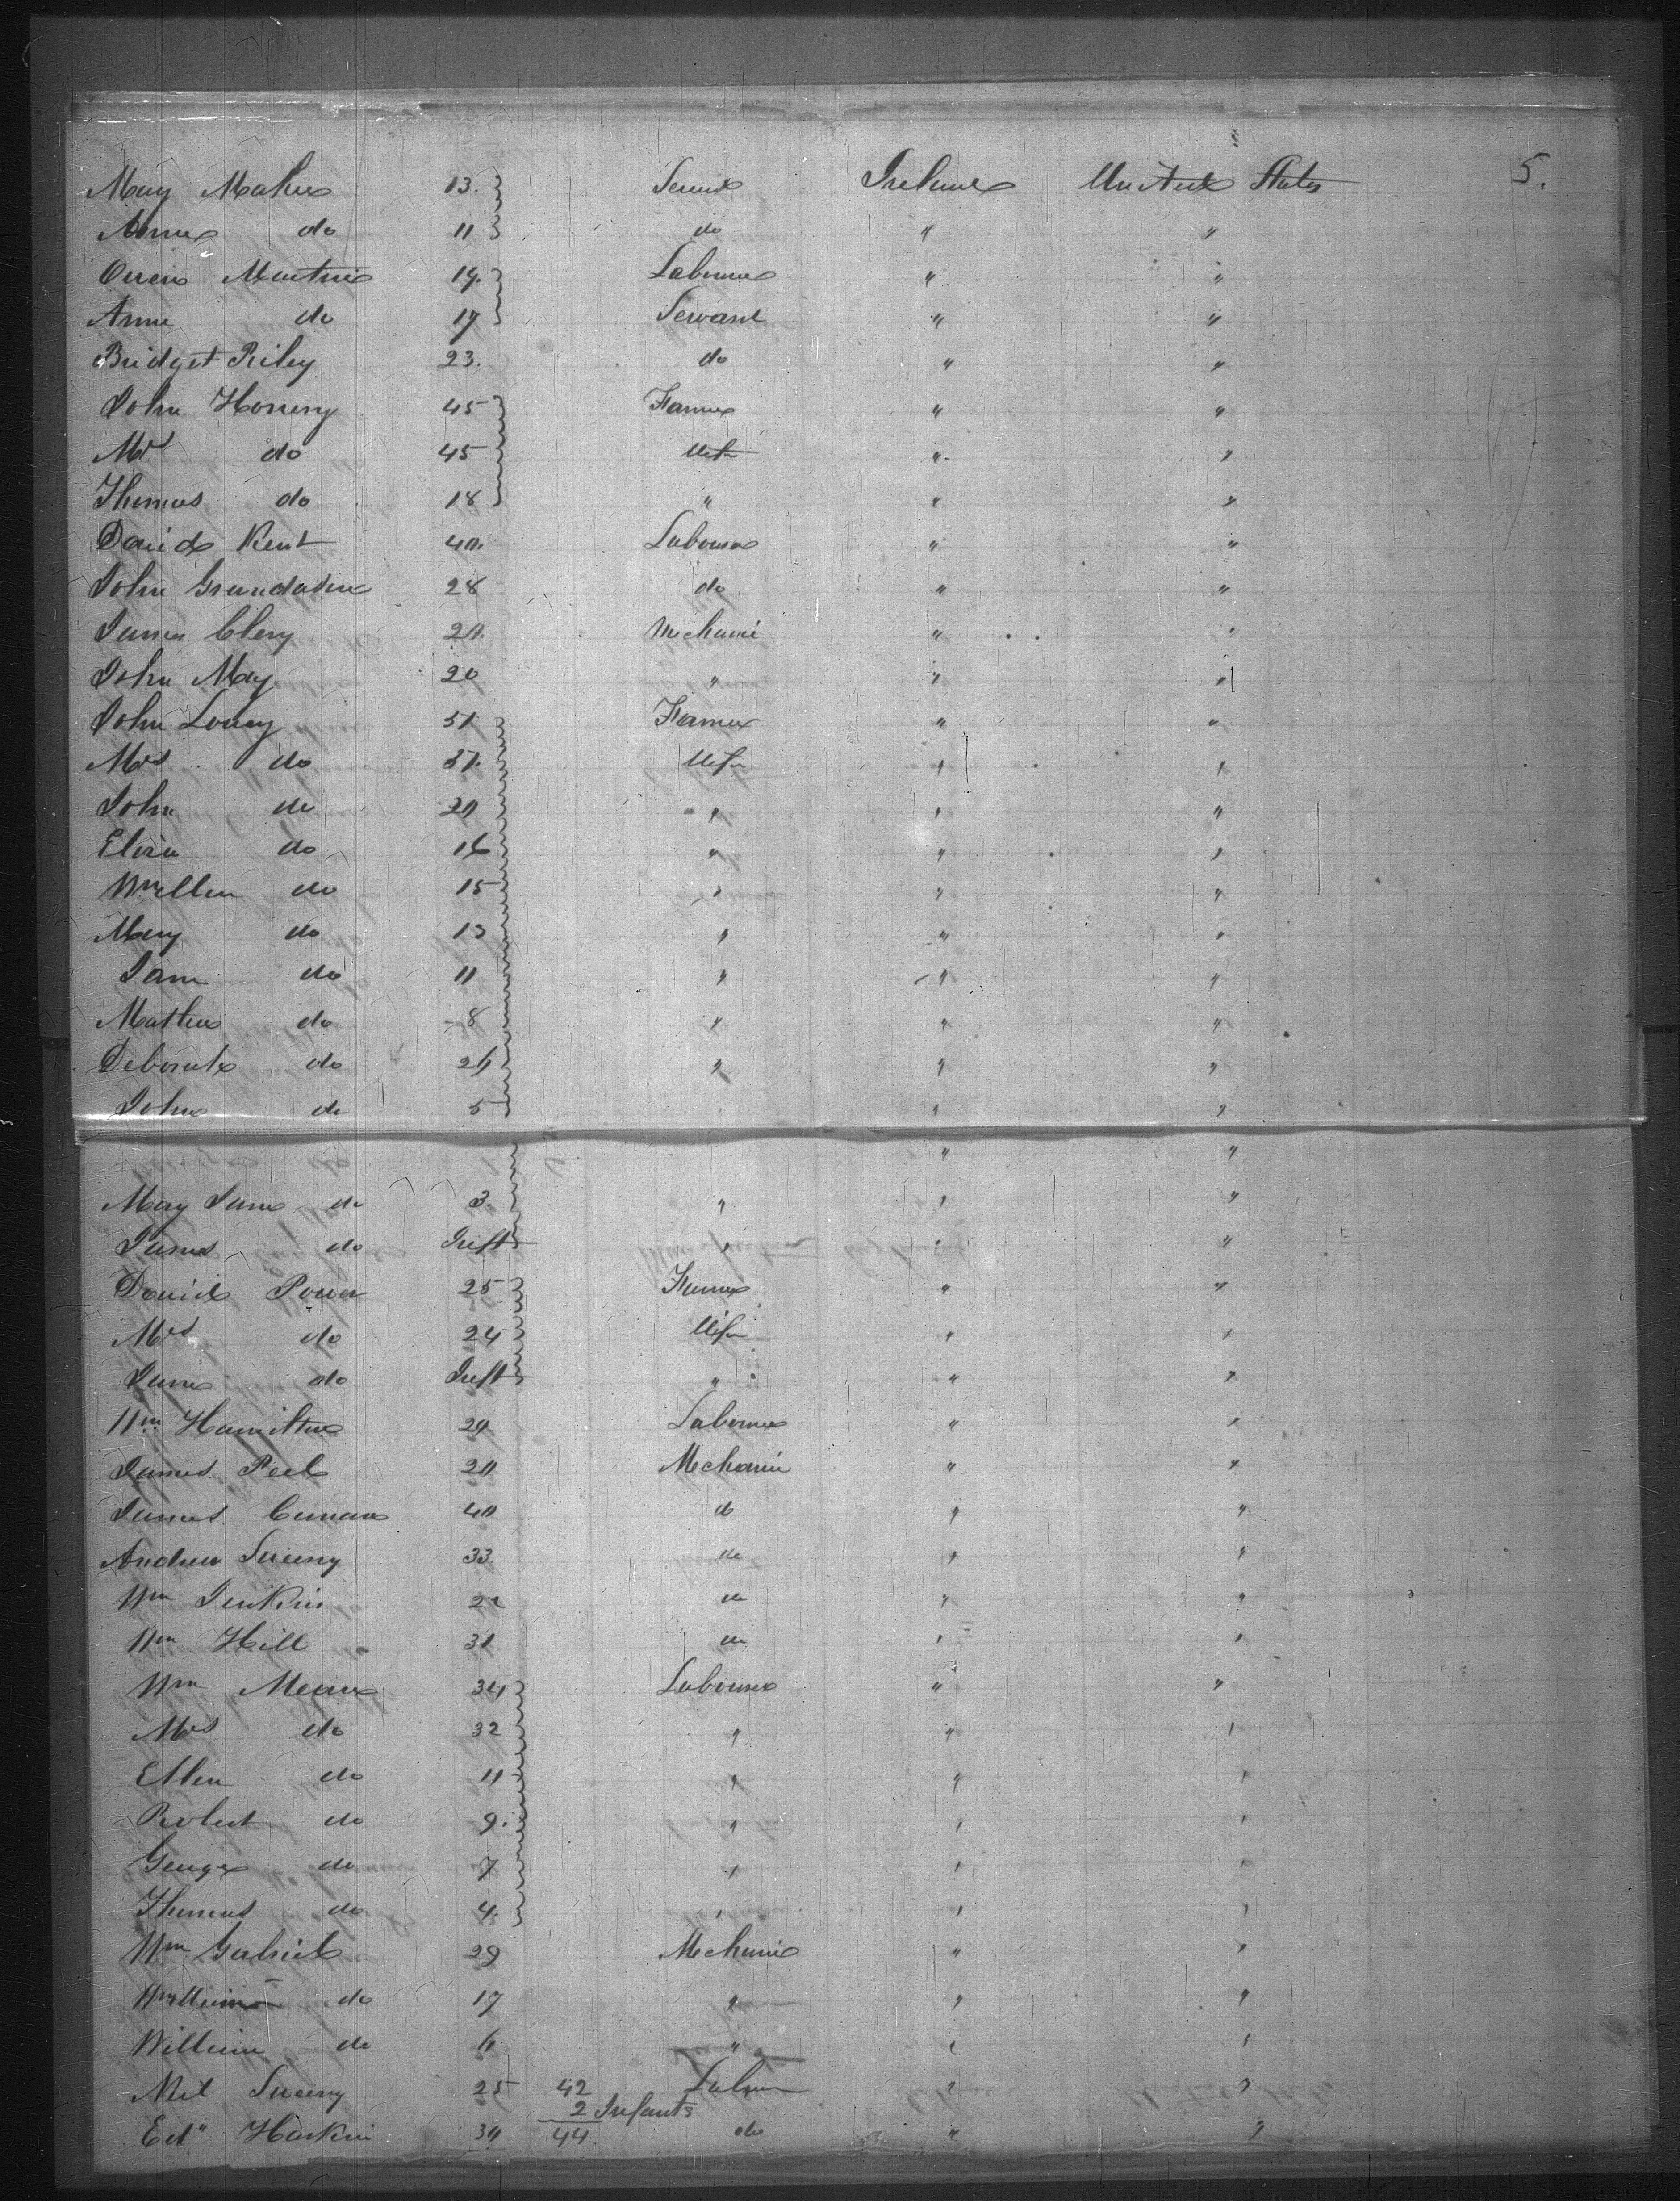 Mary Maher 13. Servt Ireland United States 5.
Anne do 11 do " "
Owen Martin 19. Labourer " "
Anne do 17 Servant " "
Bridget Riley 23. do " "
John Honery 45 Farmer " "
Mrs do 45 Wife " "
Thomas do 18 " " "
David Kent 40. Labourer " "
John 28 do " "
James Clery 20. Mechanic " "
John May 20 " " "
John Loney Farmer " "
Mrs do Wife " "
John do 20 " " "
Eliza do 16 " " "
William do 15 " " "
Mary do 13 " " "
Jane do 11 " " "
Mathew do 8 " " "
Deborah do " " "
John do 5 " "
" "
Mary Jane do 3. " " "
James do Inft " " "
David Power 25 Farmer " "
Mrs do 24 Wife " "
Jane do Inft " " "
Wm Hamilton 29 Labourer " "
James Peel 20 Mechanic " "
James 40 do " "
Andrew Sweeny 33. do " "
Wm Jenkins do " "
Wm Hill do " "
Wm Mean 34 Labourer " "
Mrs do 32 " " "
Ellen do 11 " " "
Robert do 9. " " "
George do 7 " " "
Thomas do 4. " " "
Wm Gabriel 29 Mechanic " "
do 17 " " "
William do " " "
Neil Sweeny 25 42 Labourer " "
2 Infants
Edd Harkin 30 44 do " "